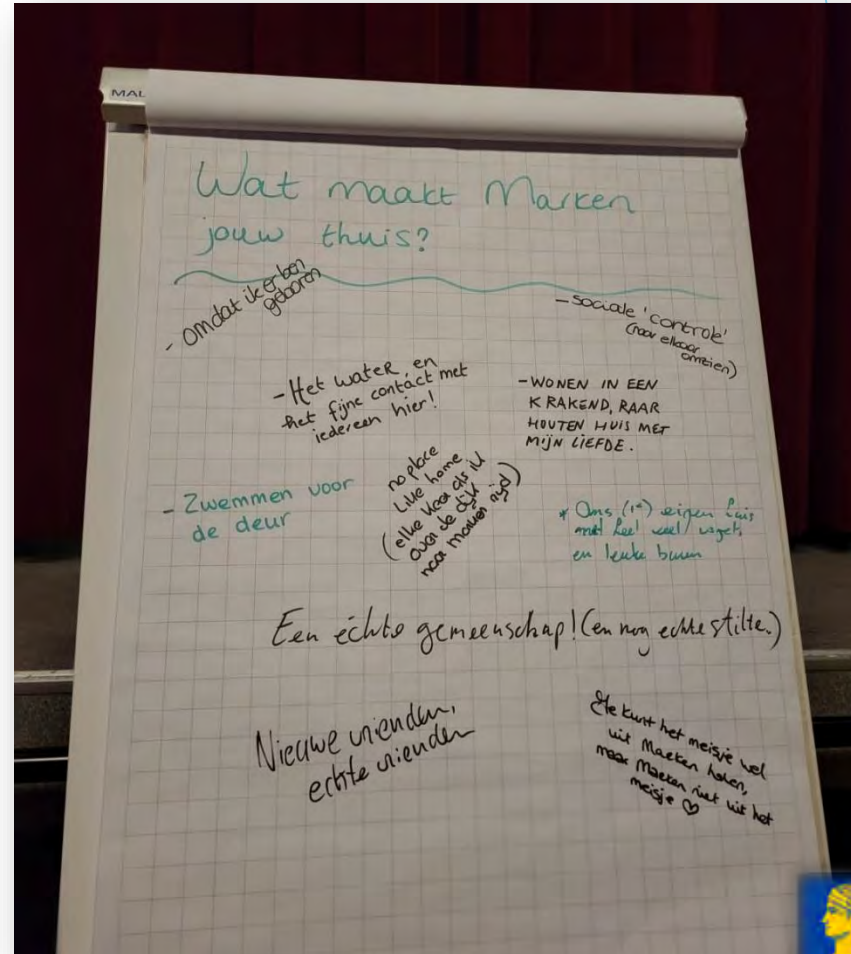 MAL
Wat maakt Marken
jouw thuis?
- omdat ik er ben
geboren
- sociale 'controle'
(naar elkaar
omzien)
- Het water, en
het fijne contact met
iedereen hier!
- WONEN IN EEN
KRAKEND, RAAR
HOUTEN HUIS MET
MIJN LIEFDE.
- Zwemmen voor
de deur
no place
like home
(elke keer als ik
over de dijk
naar marken rijd)
* Ons (1e) eigen huis
met heel veel vogels
en leuke buren
Een échte gemeenschap! (en nog echte stilte.)
Nieuwe vrienden,
echte vrienden
Je kunt het meisje wel
uit Marken halen,
maar Marken niet uit het
meisje ♡